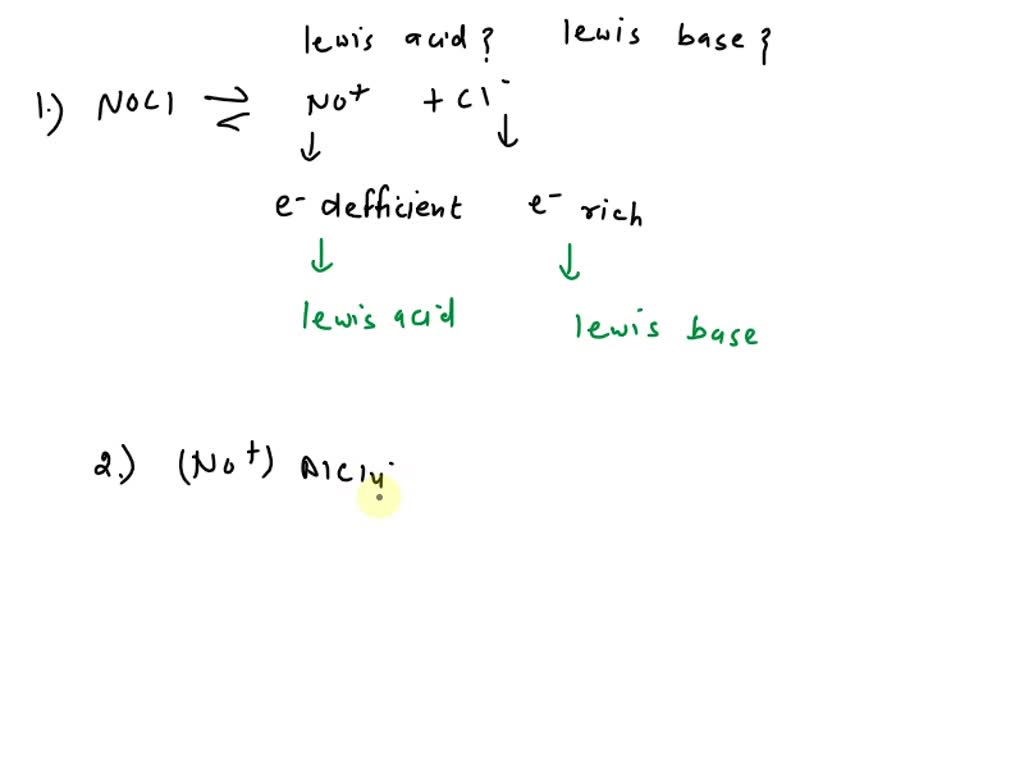 lewis acid? lewis base?
1.) NOCl ⇌ NO⁺ + Cl⁻
↓ ↓
e⁻ defficient e⁻ rich
↓ ↓
lewis acid lewis base
2.) (NO⁺) AlCl4⁻